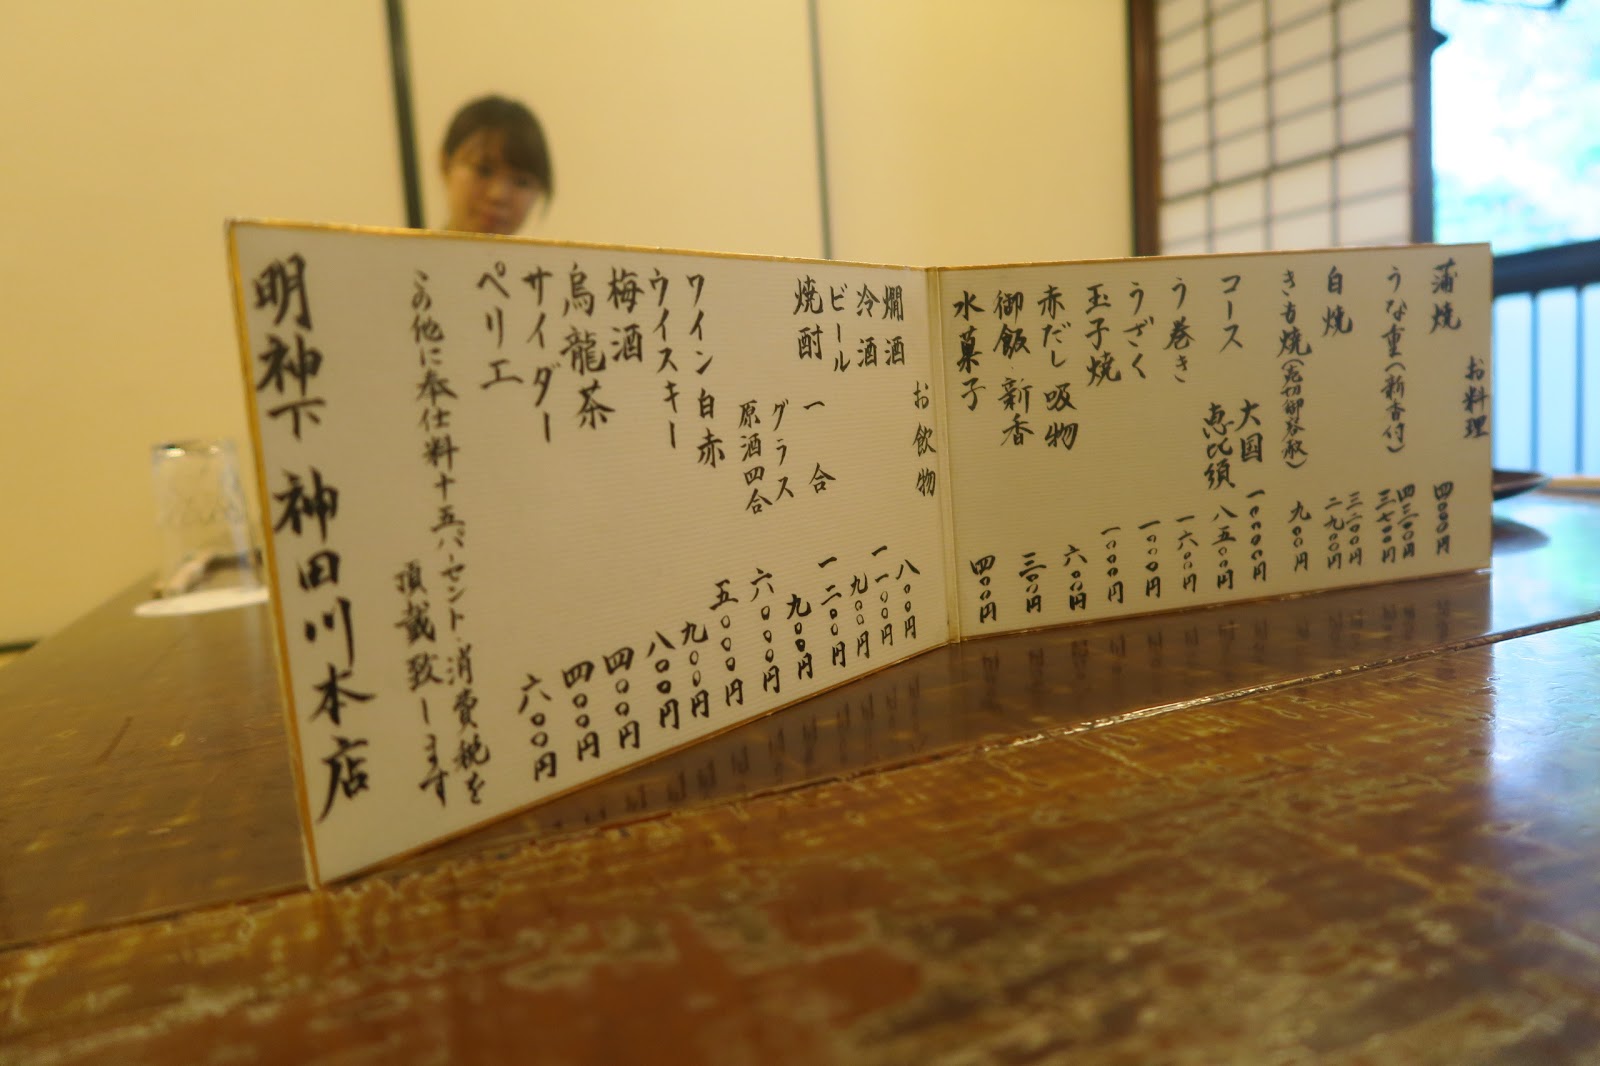 お料理
蒲焼 四〇〇〇円
うな重(新香付) 四三〇〇円
三七〇〇円
白焼 三二〇〇円
二九〇〇円
きも焼(売切御容赦) 九〇〇円
コース 大国 一〇〇〇〇円
恵比須 八五〇〇円
う巻き 一六〇〇円
うざく 一〇〇〇円
玉子焼 一〇〇〇円
赤だし 吸物 六〇〇円
御飯 新香 三〇〇円
水菓子 四〇〇円
お飲物
燗酒 八〇〇円
冷酒 一一〇〇円
ビール 九〇〇円
焼酎 一合 一二〇〇円
グラス 九〇〇円
原酒四合 六〇〇〇円
ワイン 白赤 五〇〇〇円
ウイスキー 九〇〇円
梅酒 八〇〇円
烏龍茶 四〇〇円
サイダー 四〇〇円
ペリエ 六〇〇円
この他に奉仕料十五パーセント・消費税を
頂戴致します
明神下 神田川本店